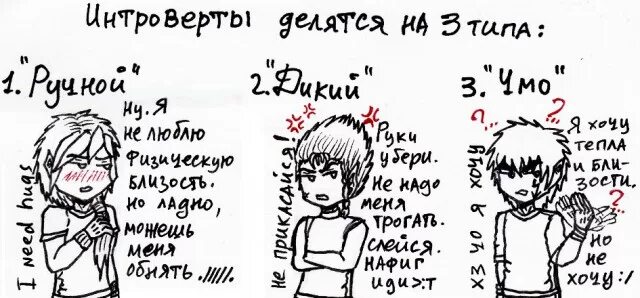 Интроверты делятся на 3 типа:
1. "Ручной"
I need hugs
Ну. Я
не люблю
физическую
близость.
Но ладно,
можешь
меня
обнять. /////.
2. "Дикий"
Не прикасайся!
Руки
убери.
Не надо
меня
трогать.
Слейся.
Нафиг
иди >:т
3. "Чмо"
?...
?
...
хз чо я хочу
Я хочу
тепла
и бли-
зости.
?
Но
не
хочу :/